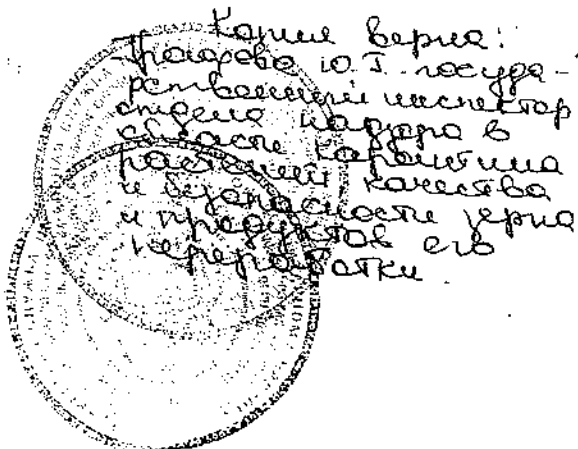 Копия верна:
Ю.Г. госуда-
рственный инспектор
отдела надзора в
области карантина
растений качества
и безопасности зерна
и продуктов его
переработки.
СЛУЖБА